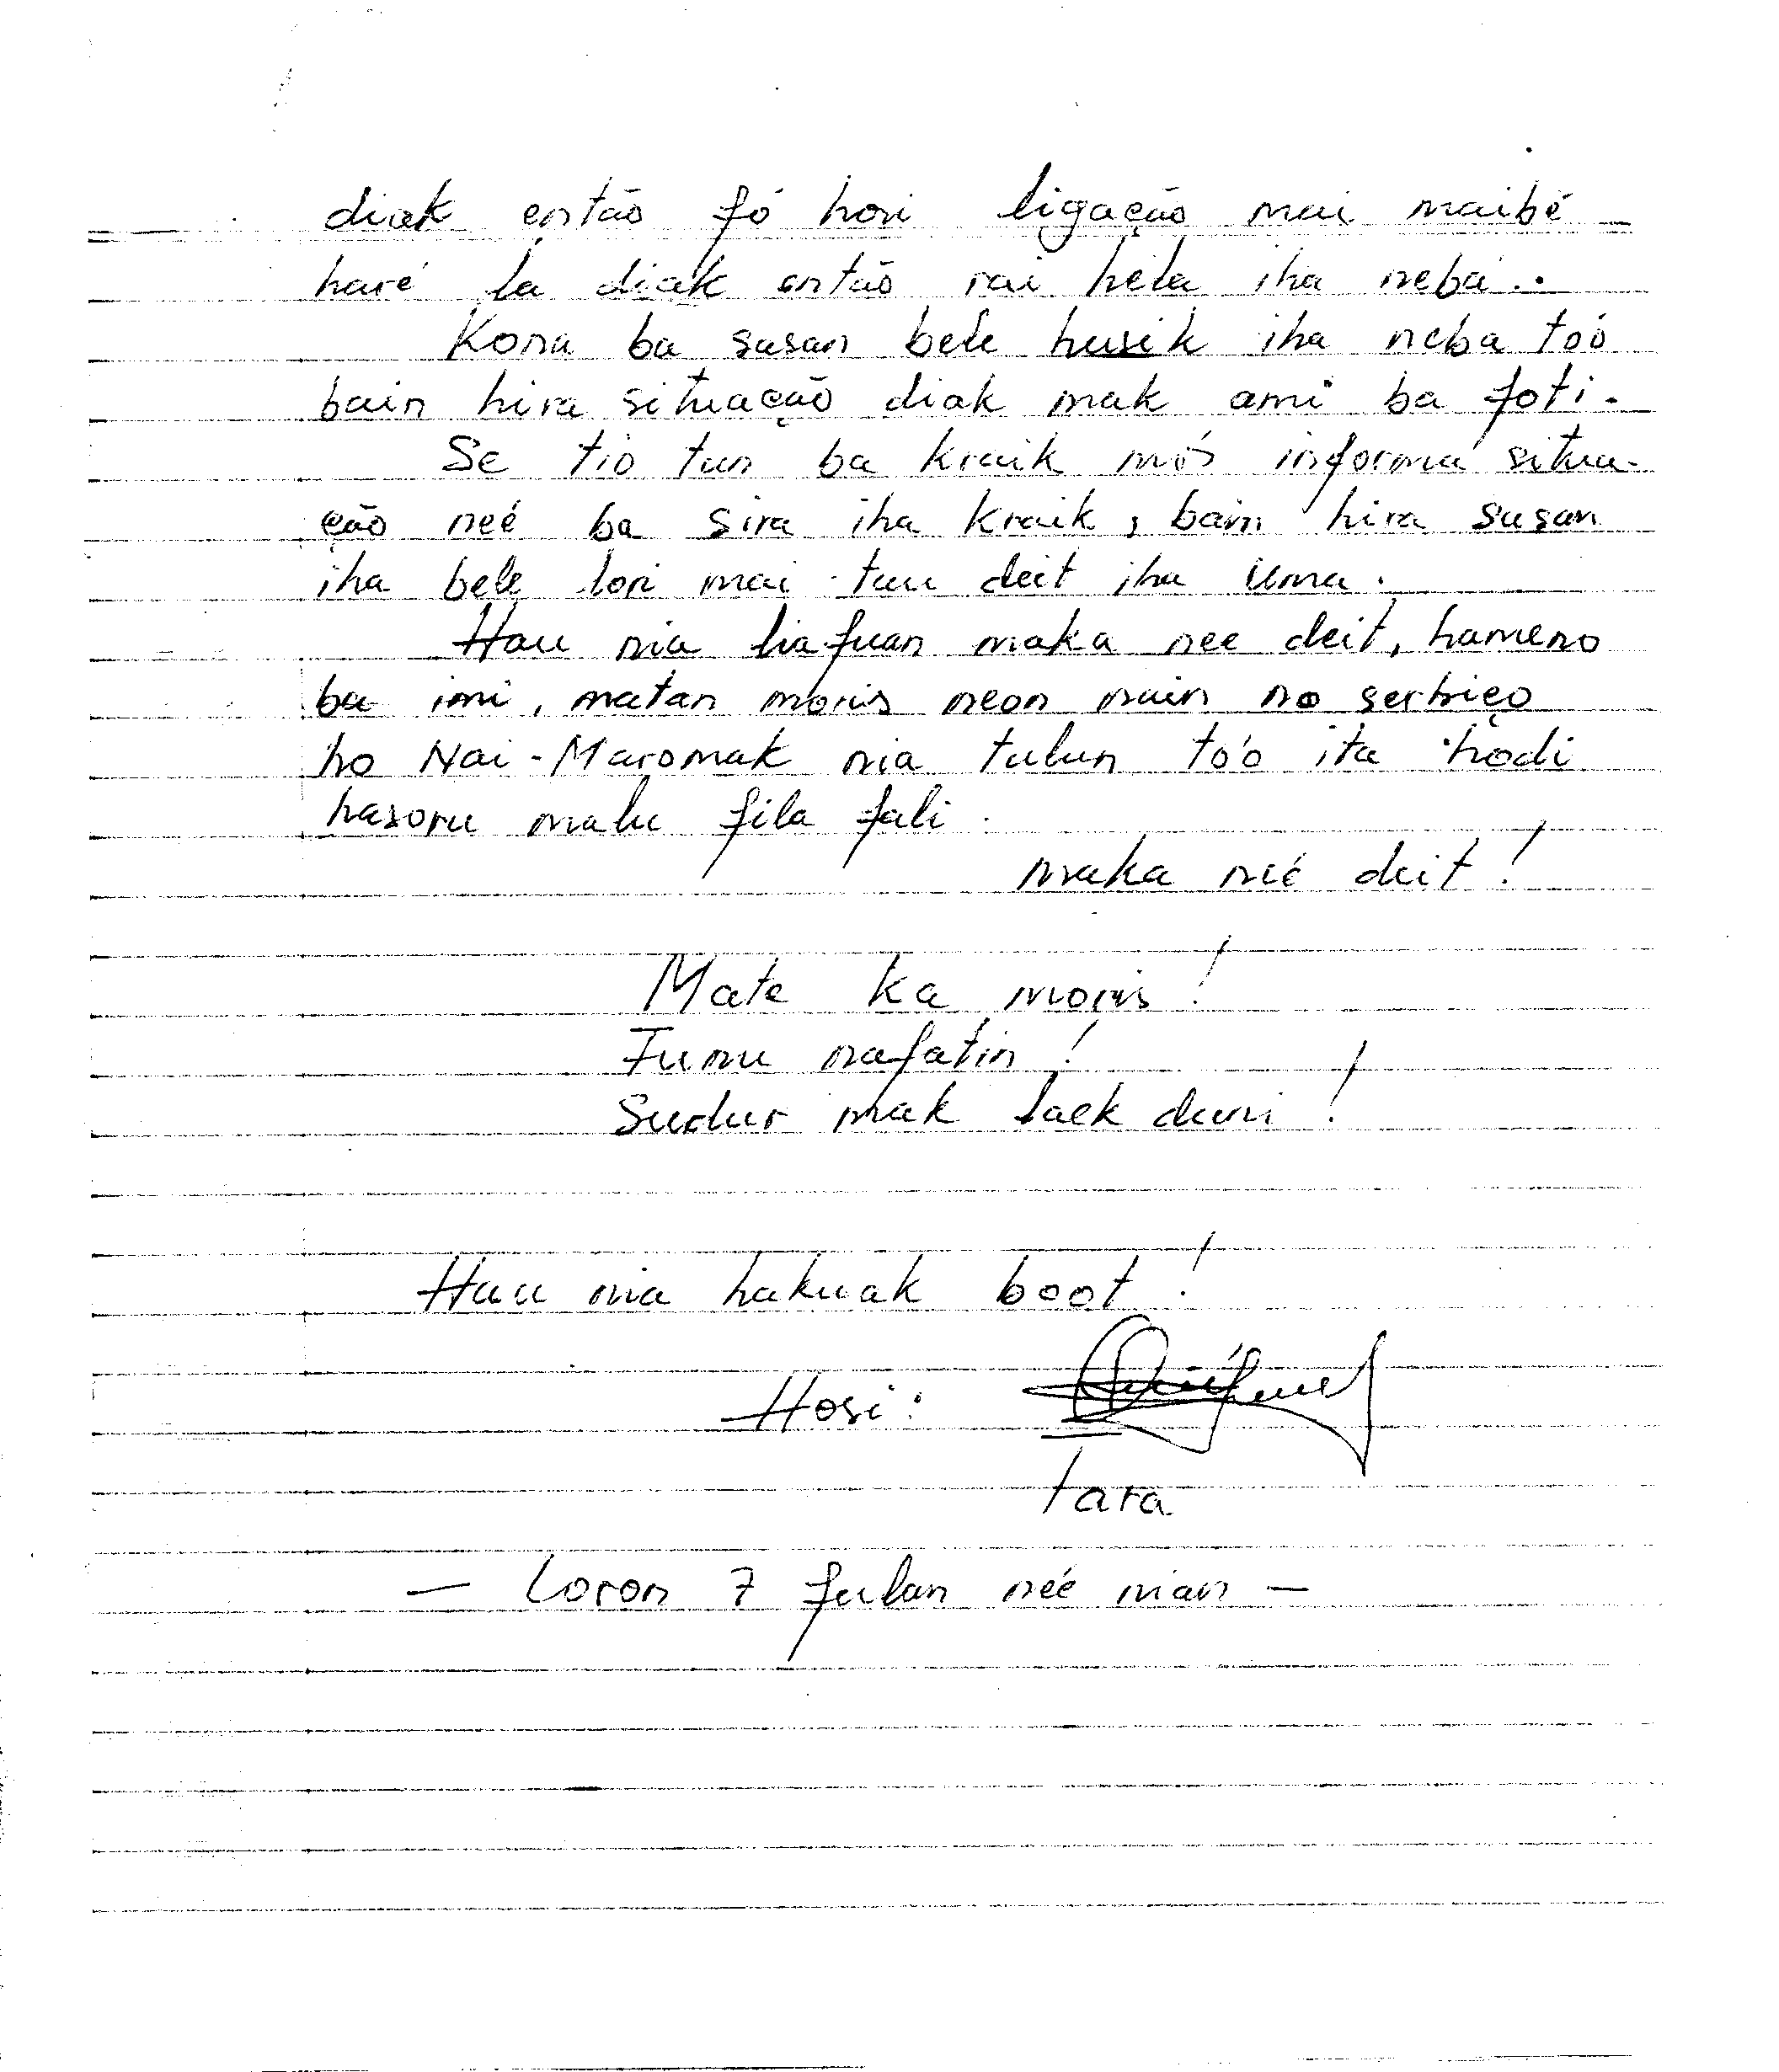 diak então fó hori ligação mai maibé
haré la diak então rai hela iha neba..
Kona ba sasan bele husik iha neba tóo
bain hira situação diak mak ami ba foti.
Se tio tun ba kraik mós informa situa-
ção neé ba sira iha kraik, bain hira sasan
iha bele lori mai tau deit iha Uma.
Hau nia liafuan maka nee deit, hameno
ba imi, matan moris neon nain no serbiço
ho Nai-Maromak nia tulun to'o ita hodi
hasoru malu fila fali.
maka neé deit!
Mate ka moris!
Funu nafatin!
Sudur mak laek duni!
Hau nia hakuak boot!
Hosi:
tara
— Loron 7 fulan neé nian —